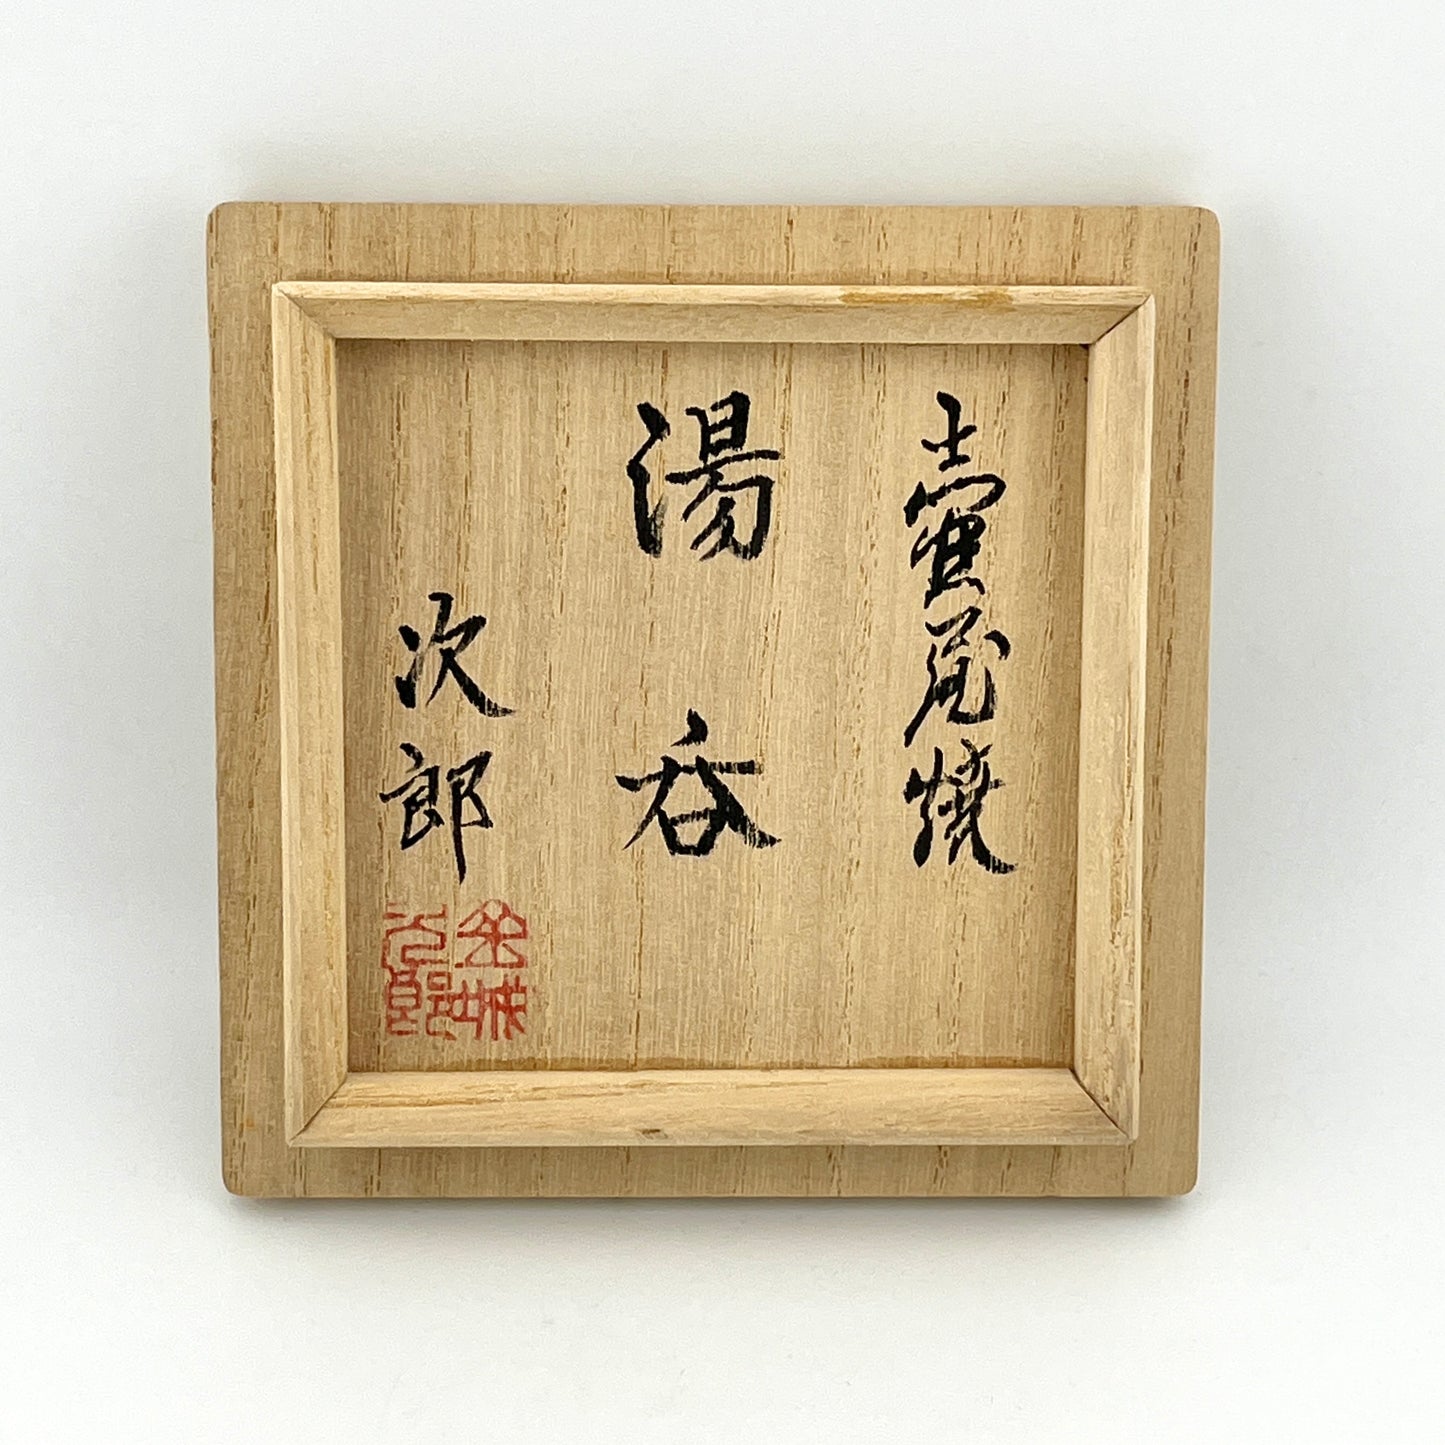 壷屋焼
湯呑
次郎
金城
次郎